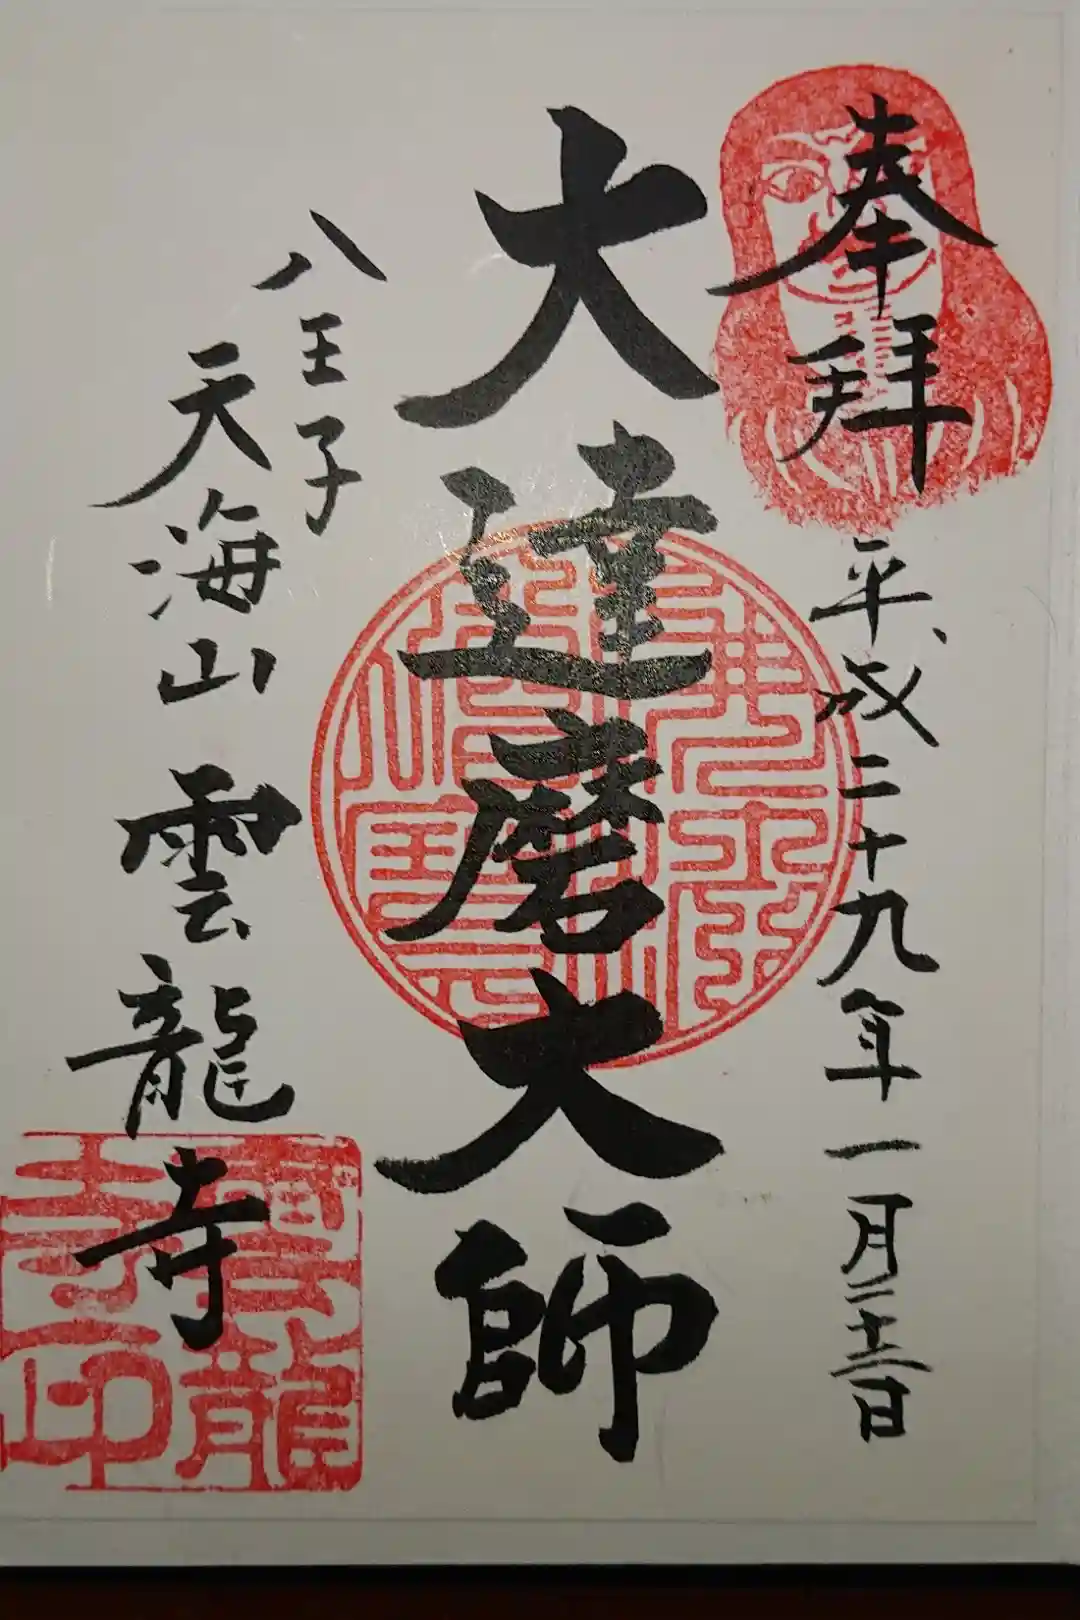 奉拝
平成二十九年一月二十二日
大達磨大師
八王子
天海山雲龍寺
雲龍
寺印